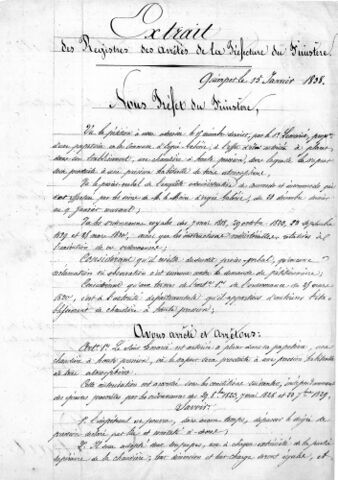 Extrait
des Registres des arrêtés de la Préfecture du Finistère.
Quimper le 15 Janvier 1838.
Nous Préfet du Finistère,
Vu la pétition à nous adressée le 9 décembre dernier, par le Sr
d'une papeterie en la commune d'Ergué-Gabéric, à l'effet d'être autorisé à placer
dans son établissement, une chaudière à haute pression, dans laquelle la vapeur
sera produite à une pression habituelle de trois atmosphères,
Vu le procès-verbal de l'enquête de commodo et incommodo qui
par les soins de M. le Maire d'Ergué-Gabéric, du 21 décembre dernier
au 9 janvier suivant;
Vu les ordonnances royales des 7 mai 1828, 29 octobre 1823, 23 septembre
1829 et 25 mars 1830, ainsi que les instructions ministérielles relatives à
l'exécution de ces ordonnances;
Considérant qu'il résulte du procès-verbal, qu'aucune
réclamation ni observation n'est survenue contre la demande du pétitionnaire;
Considérant qu'aux termes de l'art. 1er de l'ordonnance du 25 mars
1830, c'est à l'autorité départementale qu'il appartient d'autoriser l'établissement
de chaudière à haute pression,
Avons arrêté et Arrêtons:
Art. 1er Le Sieur est autorisé à placer dans sa papeterie, une
chaudière à haute pression, où la vapeur sera produite à une pression habituelle
de trois atmosphères.
Cette autorisation est accordée sous les conditions suivantes, indépendamment
des épreuves prescrites par les ordonnances des 29 8bre 1823, 7 mai 1828 et 23 7bre 1829.
Savoir:
1° L'impétrant ne pourra, dans aucun temps, dépasser le degré de
pression déclaré par lui et constaté ci-dessus.
2° Il sera adapté deux soupapes, une à chaque extrémité de la partie
supérieure de la chaudière; leur dimension et leur charge seront égales, et